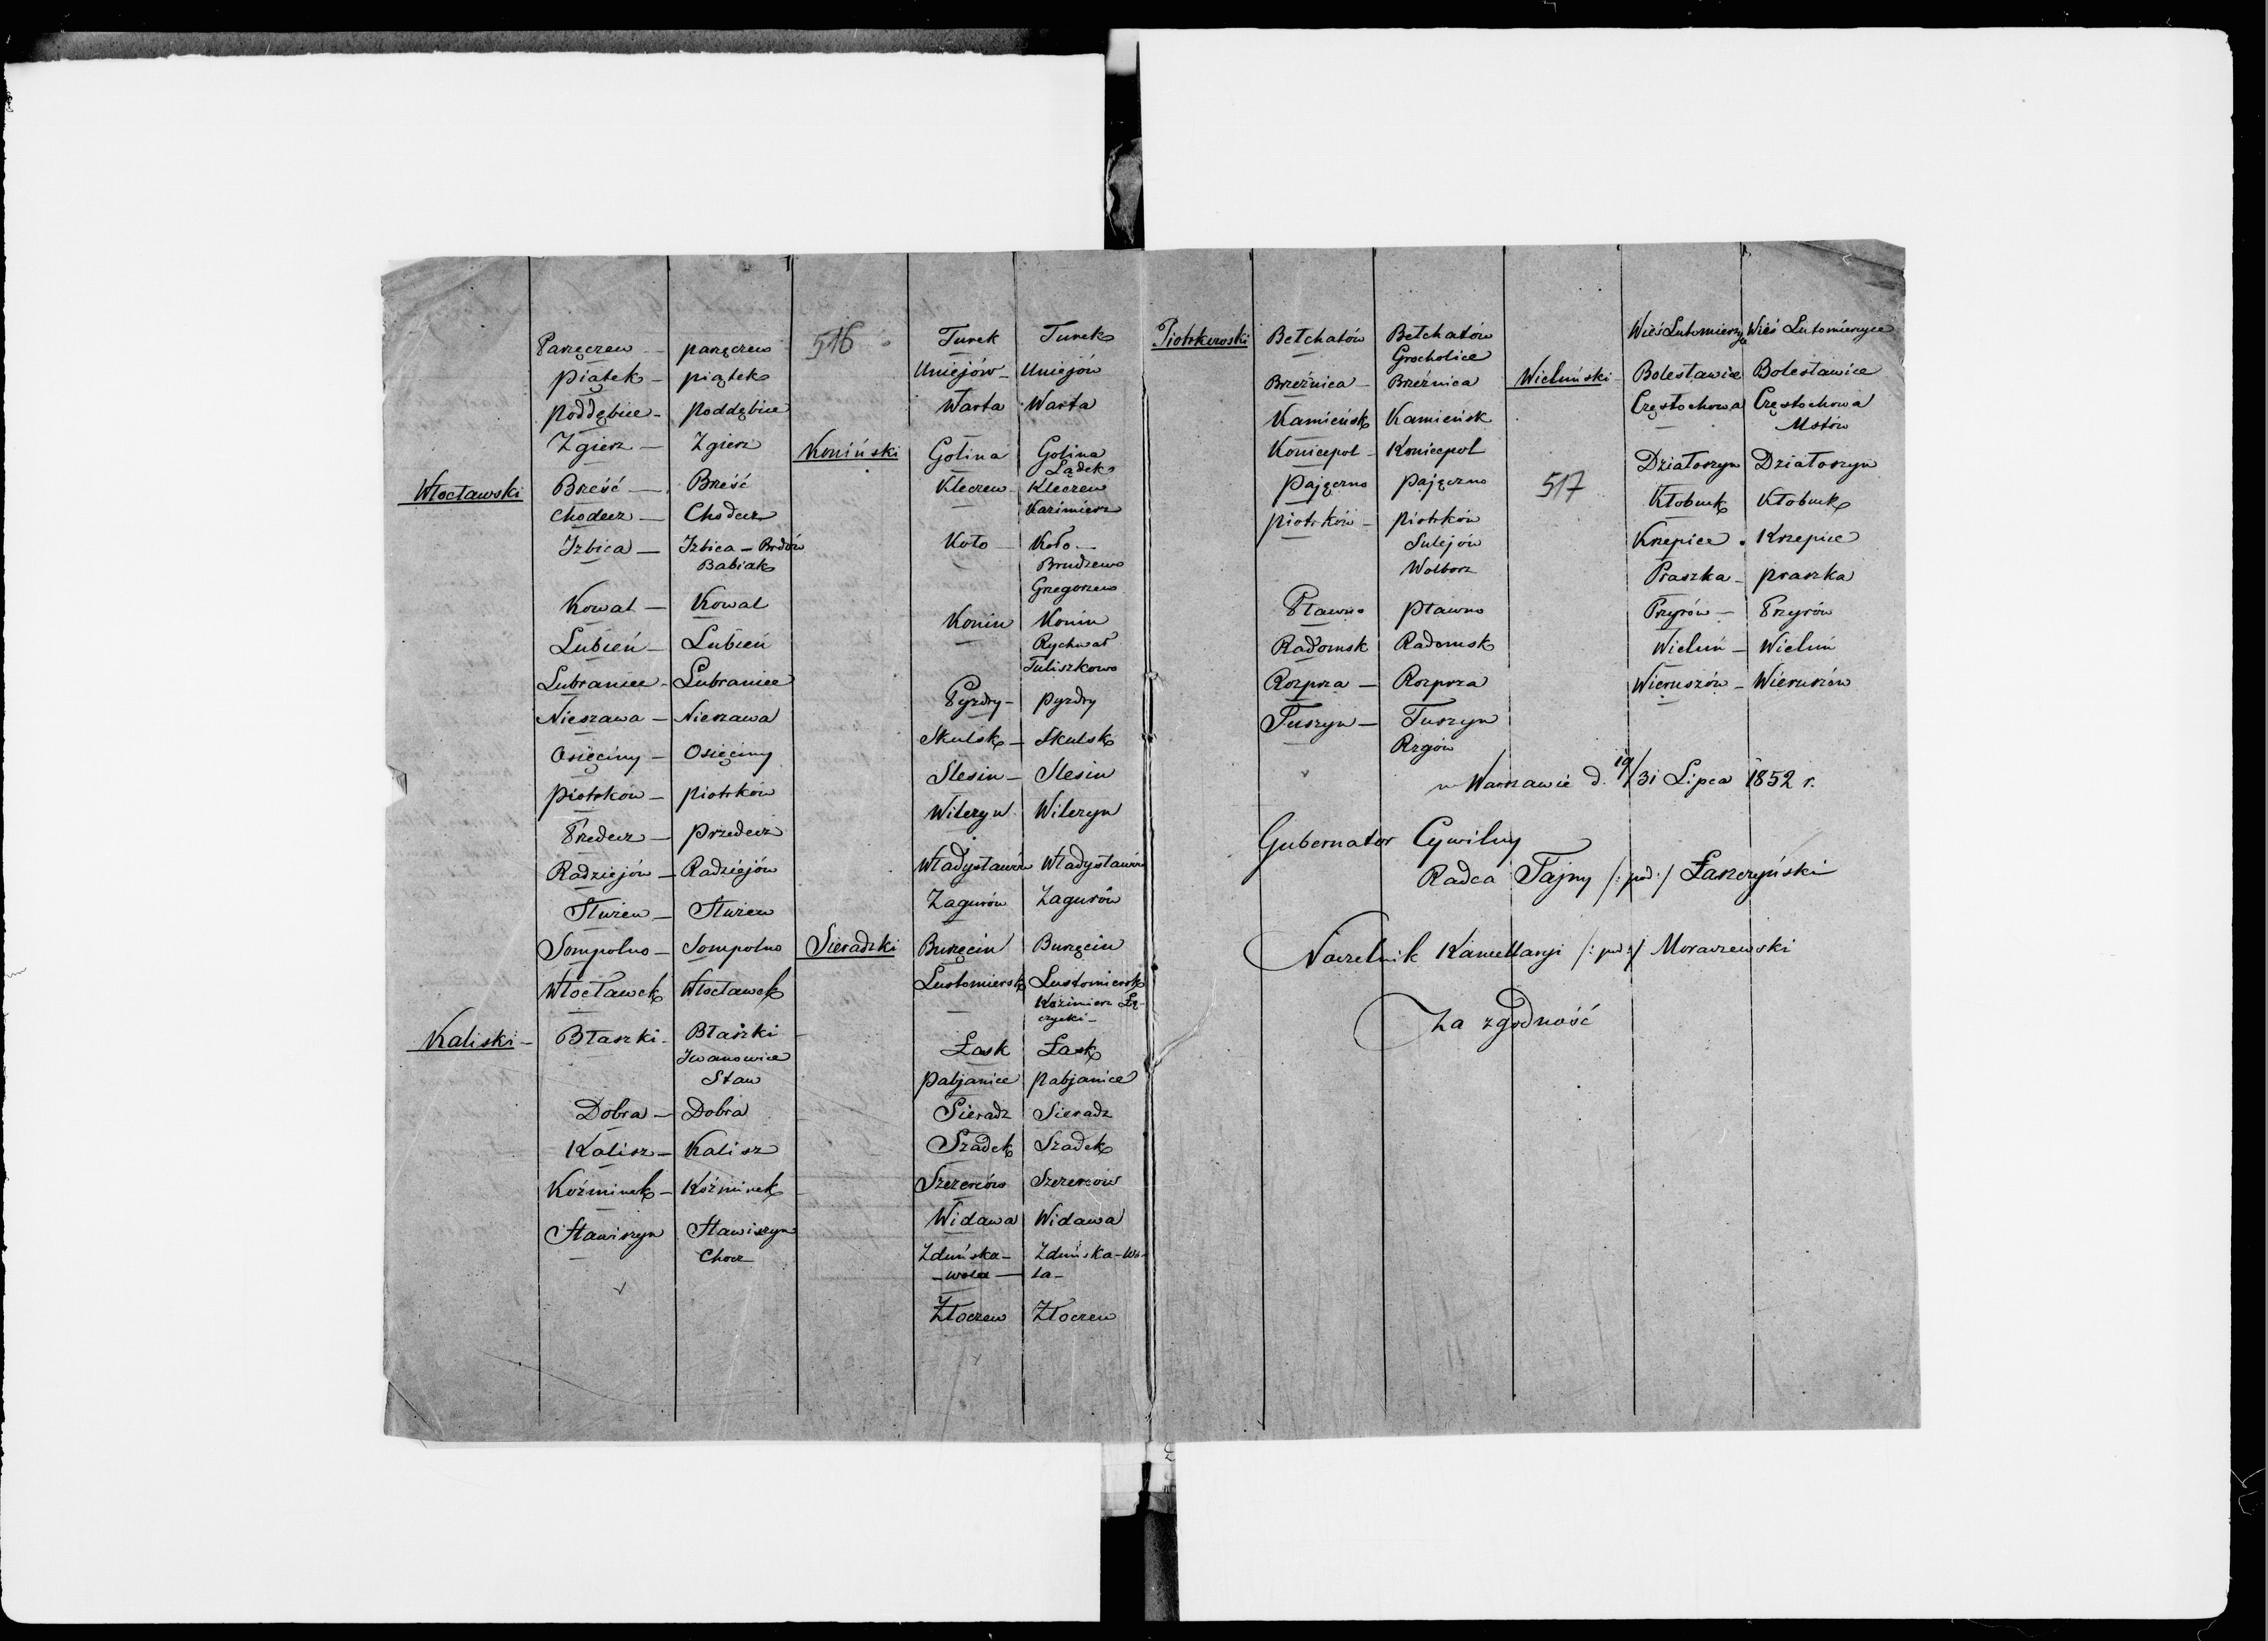 516
Parzęczew - parzęczew
piątek - piątek
poddębice - poddębice
Zgierz - Zgierz
Włocławski Brześć - Brześć
Chodecz - Chodecz
Izbica - Izbica - Brdów
Babiak
Kowal - Kowal
Lubień - Lubień
Lubraniec - Lubraniec
Nieszawa - Nieszawa
Osięciny - Osięciny
piotrków - piotrków
Przedecz - przedecz
Radziejów - Radziejów
Służew - Służew
Sompolno - Sompolno
Włocławek Włocławek
Kaliski - Błaszki - Błaszki
Iwanowice
Staw
Dobra - Dobra
Kalisz - Kalisz
Koźminek - Koźminek
Stawiszyn Stawiszyn
Chocz
Turek Turek
Uniejów - Uniejów
Warta Warta
Koniński Golina Golina
Lądek
Kleczew - Kleczew
Kazimierz
Koło - Koło -
Brudzew
Grzegorzew
Konin Konin
Rychwał
Tuliszkowo
Pyzdry - pyzdry
Skulsk - Skulsk
Slesin - Slesin
Wilczyn Wilczyn
Władysławów Władysławów
Zagurów Zagurów
Sieradzki Burzęcin Burzęcin
Lustomiersk Lustomiersk
Kazimierz Łę-
czycki -
Łask Łask
pabjanice pabjanice
Sieradz Sieradz
Szadek Szadek
Szczerców Szczerców
Widawa Widawa
Zduńska - Zduńska - Wo-
- wola - la -
Złoczew Złoczew
Piotrkowski Bełchatów Bełchatów
Grocholice
Brzeźnica - Brzeźnica
Kamieńsk Kamieńsk
Koniecpol - Koniecpol
pajęczno pajęczno
piotrków - piotrków
Sulejów
Wolborz
Pławno pławno
Radomsk Radomsk
Rozprza - Rozprza
Tuszyn - Tuszyn
Rzgów
517
Wieś Lutomierzyce Wieś Lutomierzyce
Wieluński - Bolesławice Bolesławice
Częstochowa Częstochowa
Mstów
Działoszyn Działoszyn
Kłobuck Kłobuck
Krzepice . Krzepice
Praszka - praszka
Przyrów - Przyrów
Wieluń - Wieluń
Wieruszów - Wieruszów
w Warszawie d. 19/31 Lipca 1852 r.
Gubernator Cywilny
Radca Tajny /: pod :/ Łaszczyński
Naczelnik Kancellaryi /: pod :/ Moraczewski
Za zgodność